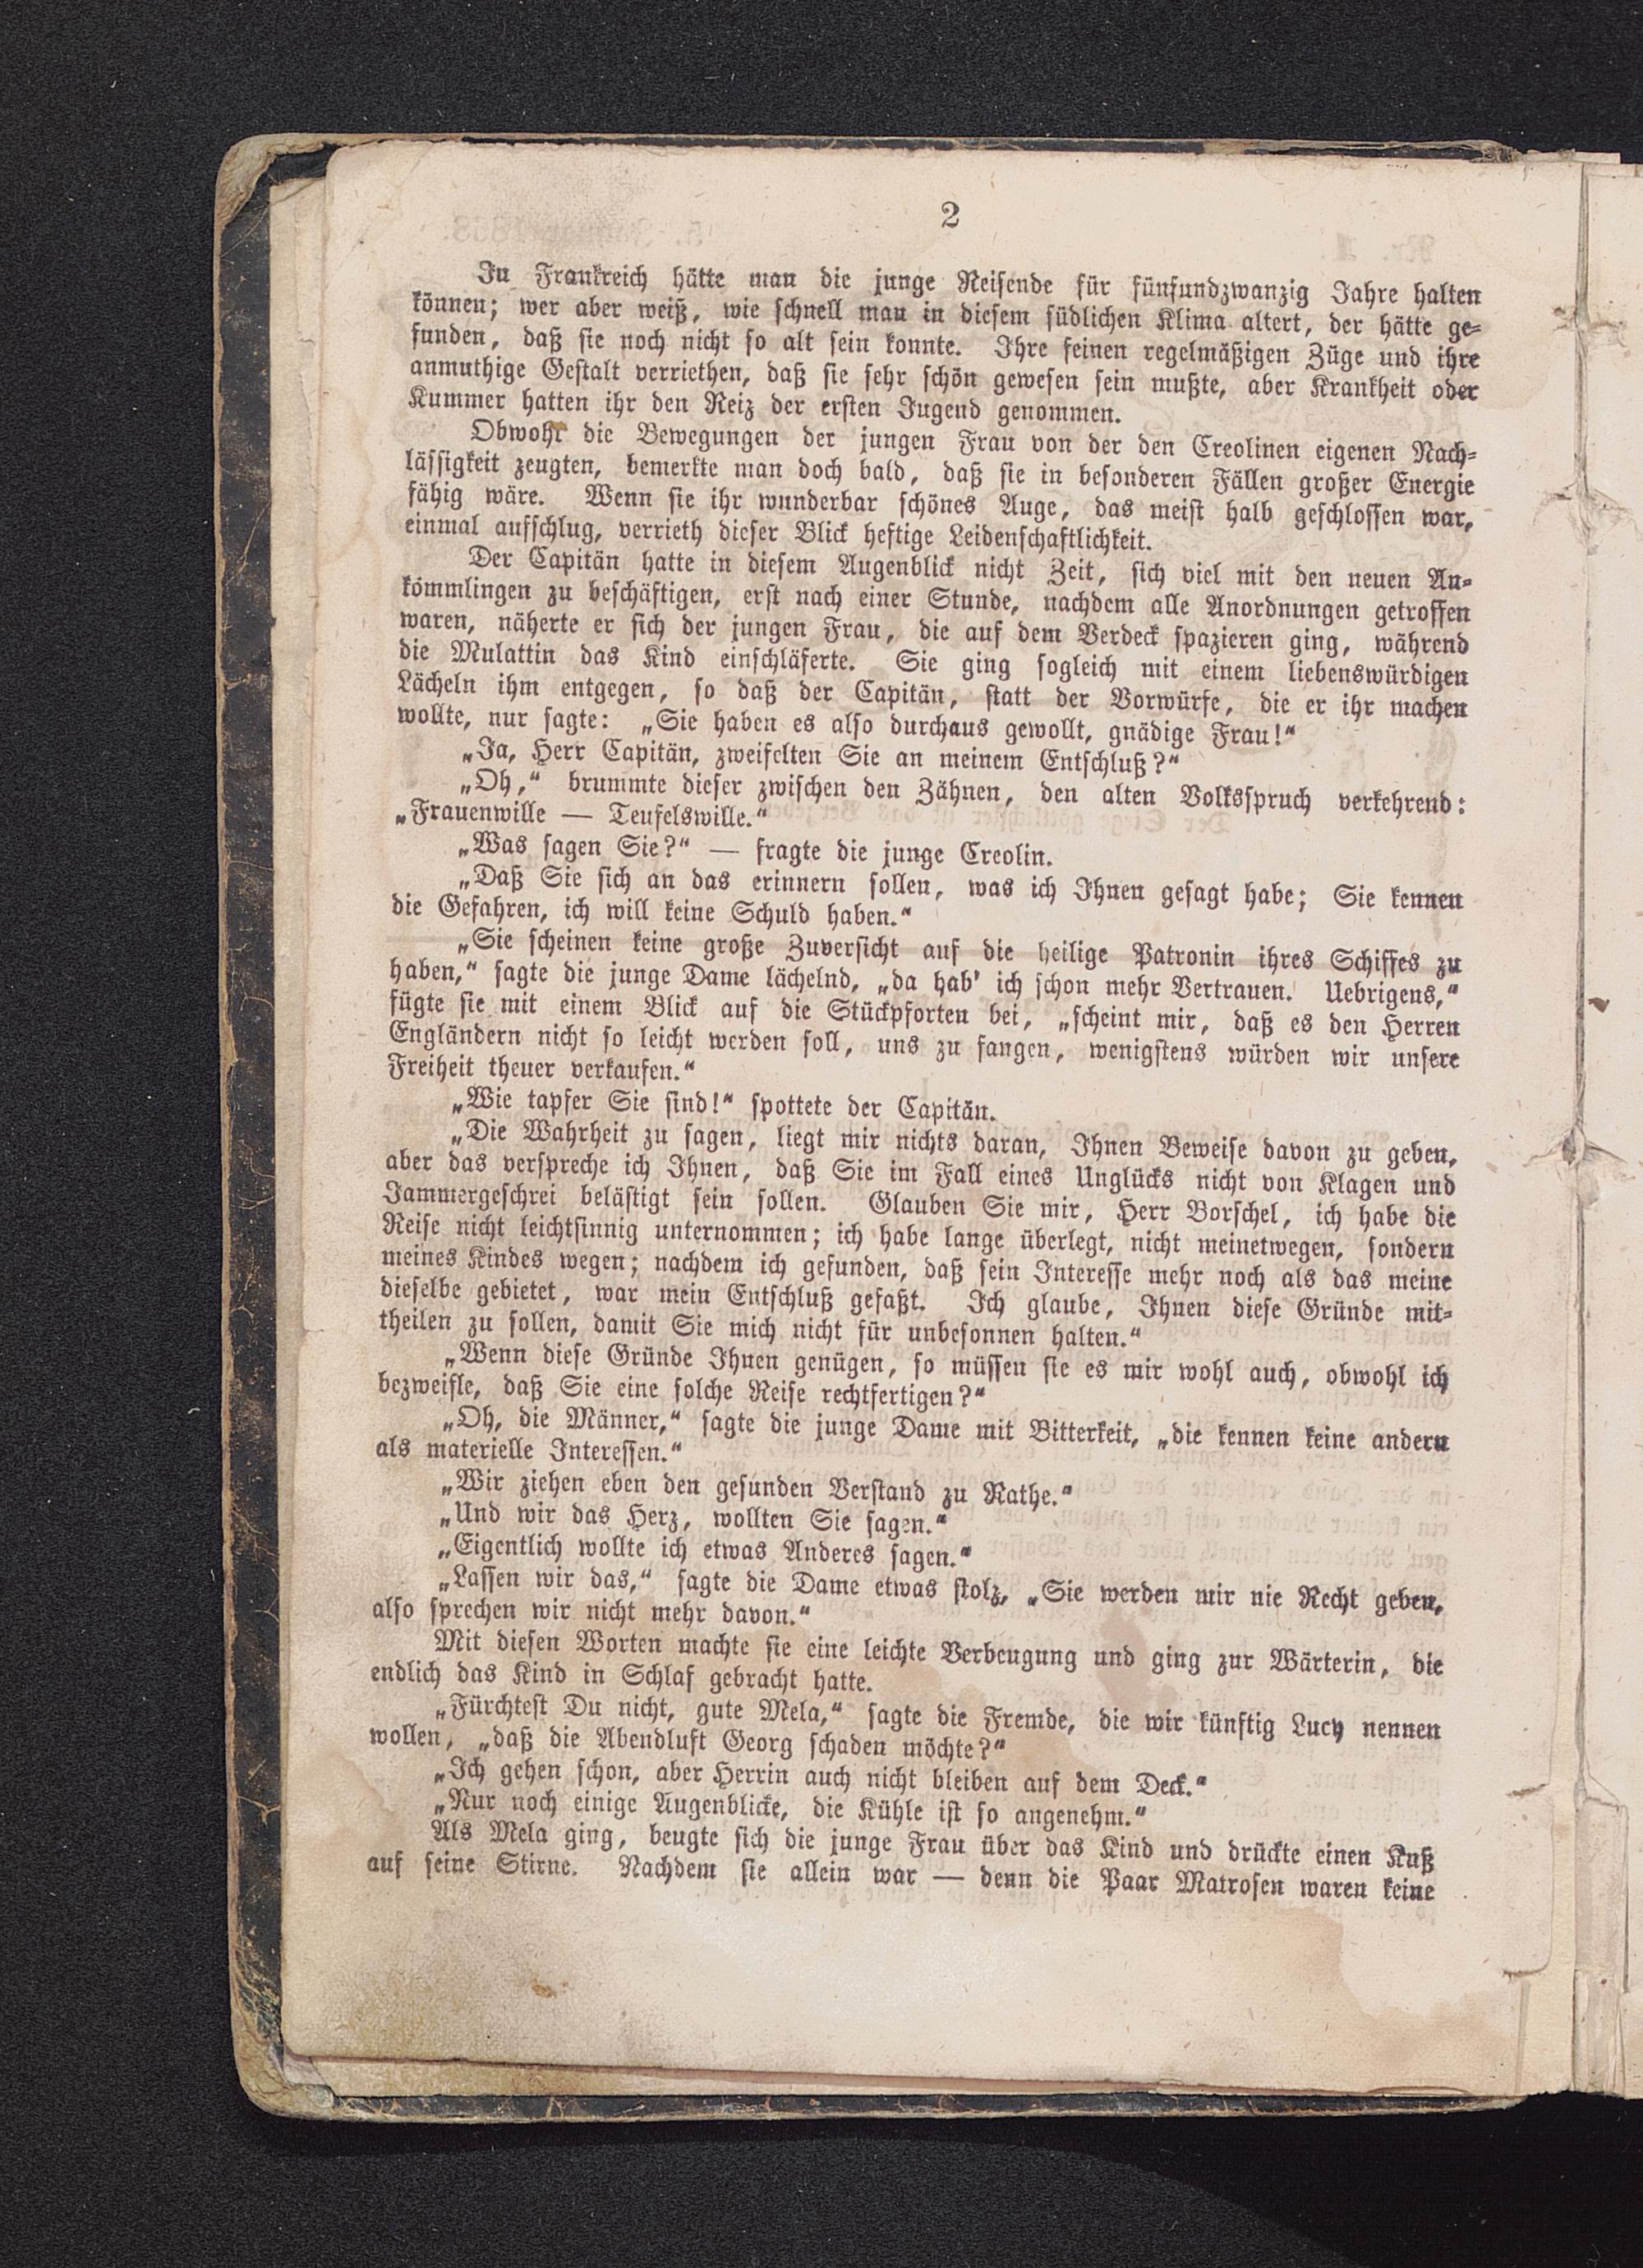 2
In Frankreich hätte man die junge Reisende für fünfundzwanzig Jahre halten
können; wer aber weiß, wie schnell man in diesem südlichen Klima altert, der hätte ge-
funden, daß sie noch nicht so alt sein konnte. Ihre feinen regelmäßigen Züge und ihre
anmuthige Gestalt verriethen, daß sie sehr schön gewesen sein mußte, aber Krankheit oder
Kummer hatten ihr den Reiz der ersten Jugend genommen.
Obwohl die Bewegungen der jungen Frau von der den Creolinen eigenen Nach-
lässigkeit zeugten, bemerkte man doch bald, daß sie in besonderen Fällen großer Energie
fähig wäre. Wenn sie ihr wunderbar schönes Auge, das meist halb geschlossen war,
einmal aufschlug, verrieth dieser Blick heftige Leidenschaftlichkeit.
Der Capitän hatte in diesem Augenblick nicht Zeit, sich viel mit den neuen An-
kömmlingen zu beschäftigen, erst nach einer Stunde, nachdem alle Anordnungen getroffen
waren, näherte er sich der jungen Frau, die auf dem Verdeck spazieren ging, während
die Mulattin das Kind einschläferte. Sie ging sogleich mit einem liebenswürdigen
Lächeln ihm entgegen, so daß der Capitän, statt der Vorwürfe, die er ihr machen
wollte, nur sagte: „Sie haben es also durchaus gewollt, gnädige Frau!“
„Ja, Herr Capitän, zweifelten Sie an meinem Entschluß?“
„Oh,“ brummte dieser zwischen den Zähnen, den alten Volksspruch verkehrend:
„Frauenwille — Teufelswille.“
„Was sagen Sie?“ — fragte die junge Creolin.
„Daß Sie sich an das erinnern sollen, was ich Ihnen gesagt habe; Sie kennen
die Gefahren, ich will keine Schuld haben.“
„Sie scheinen keine große Zuversicht auf die heilige Patronin ihres Schiffes zu
haben,“ sagte die junge Dame lächelnd, „da hab' ich schon mehr Vertrauen. Uebrigens,“
fügte sie mit einem Blick auf die Stückpforten bei, „scheint mir, daß es den Herren
Engländern nicht so leicht werden soll, uns zu fangen, wenigstens würden wir unsere
Freiheit theuer verkaufen.“
„Wie tapfer Sie sind!“ spottete der Capitän.
„Die Wahrheit zu sagen, liegt mir nichts daran, Ihnen Beweise davon zu geben,
aber das verspreche ich Ihnen, daß Sie im Fall eines Unglücks nicht von Klagen und
Jammergeschrei belästigt sein sollen. Glauben Sie mir, Herr Borschel, ich habe die
Reise nicht leichtsinnig unternommen; ich habe lange überlegt, nicht meinetwegen, sondern
meines Kindes wegen; nachdem ich gefunden, daß sein Interesse mehr noch als das meine
dieselbe gebietet, war mein Entschluß gefaßt. Ich glaube, Ihnen diese Gründe mit-
theilen zu sollen, damit Sie mich nicht für unbesonnen halten.“
„Wenn diese Gründe Ihnen genügen, so müssen sie es mir wohl auch, obwohl ich
bezweifle, daß Sie eine solche Reise rechtfertigen?“
„Oh, die Männer,“ sagte die junge Dame mit Bitterkeit, „die kennen keine andern
als materielle Interessen.“
„Wir ziehen eben den gesunden Verstand zu Rathe.“
„Und wir das Herz, wollten Sie sagen.“
„Eigentlich wollte ich etwas Anderes sagen.“
„Lassen wir das,“ sagte die Dame etwas stolz, „Sie werden mir nie Recht geben,
also sprechen wir nicht mehr davon.“
Mit diesen Worten machte sie eine leichte Verbeugung und ging zur Wärterin, die
endlich das Kind in Schlaf gebracht hatte.
„Fürchtest Du nicht, gute Mela,“ sagte die Fremde, die wir künftig Lucy nennen
wollen, „daß die Abendluft Georg schaden möchte?“
„Ich gehen schon, aber Herrin auch nicht bleiben auf dem Deck.“
„Nur noch einige Augenblicke, die Kühle ist so angenehm.“
Als Mela ging, beugte sich die junge Frau über das Kind und drückte einen Kuß
auf seine Stirne. Nachdem sie allein war — denn die Paar Matrosen waren keine